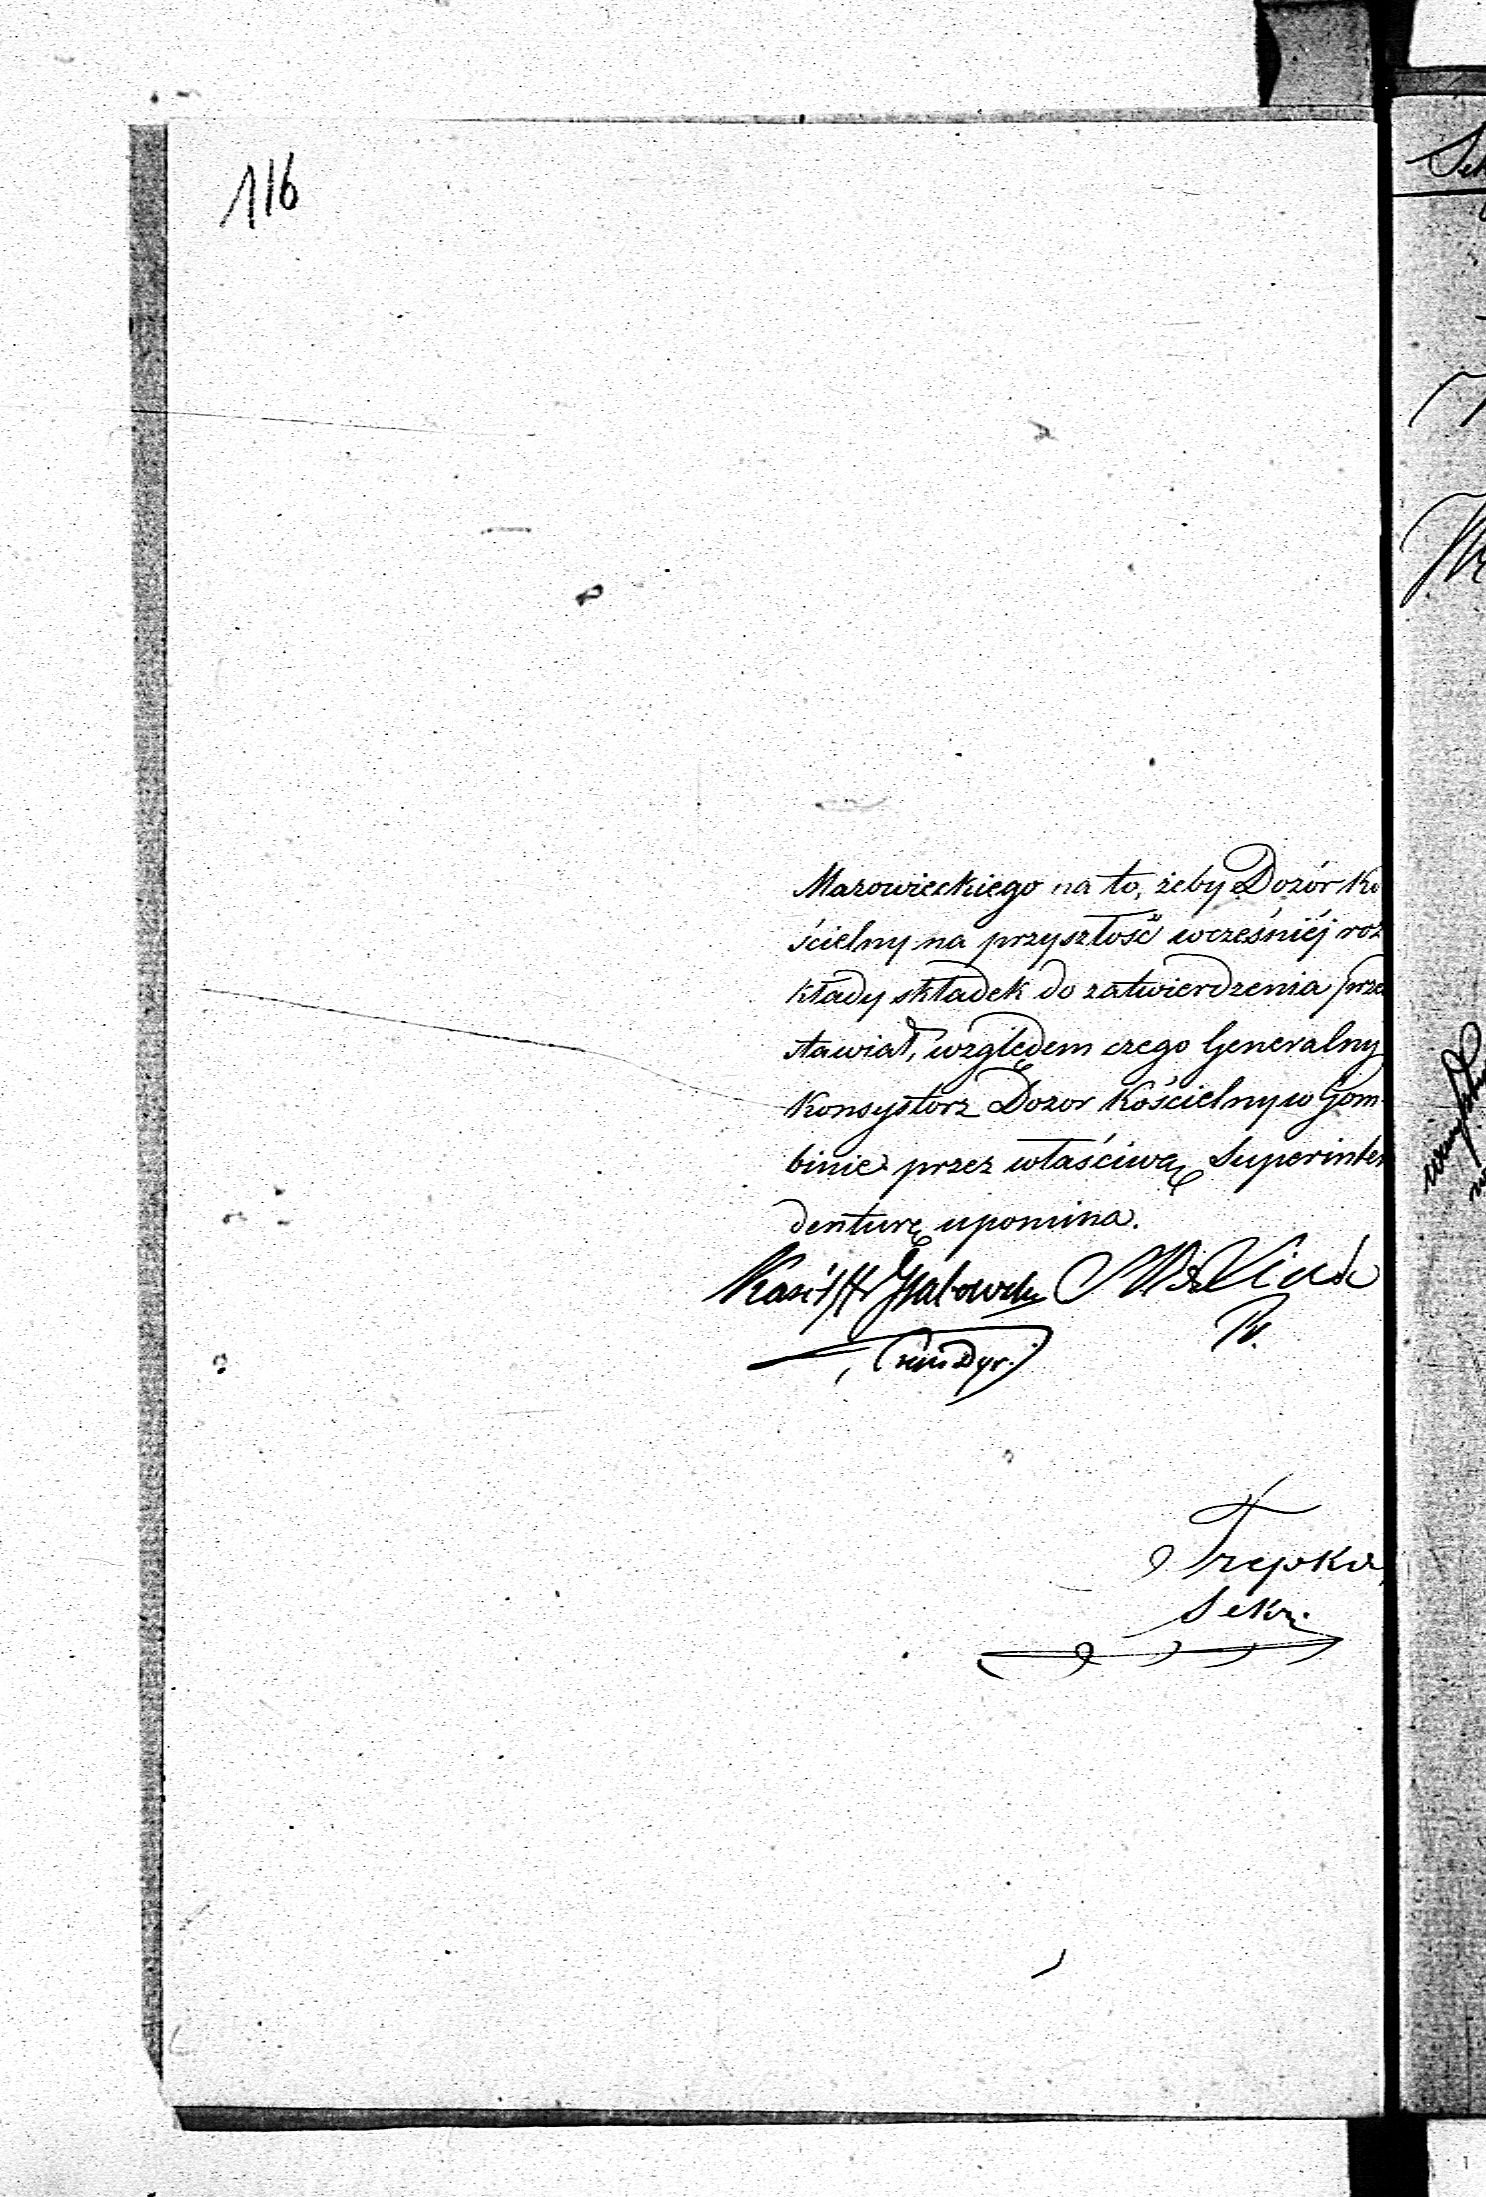 116
Mazowieckiego na to, żeby Dozór Ko
ścielny na przyszłość wcześniéj roz
kłady składek do zatwierdzenia prze
stawiał, względem czego Generalny
Konsystorz Dozor Kościelny w Gom-
binie przez właściwą Superinten
denturę upomina.
Trepka
Sekr.